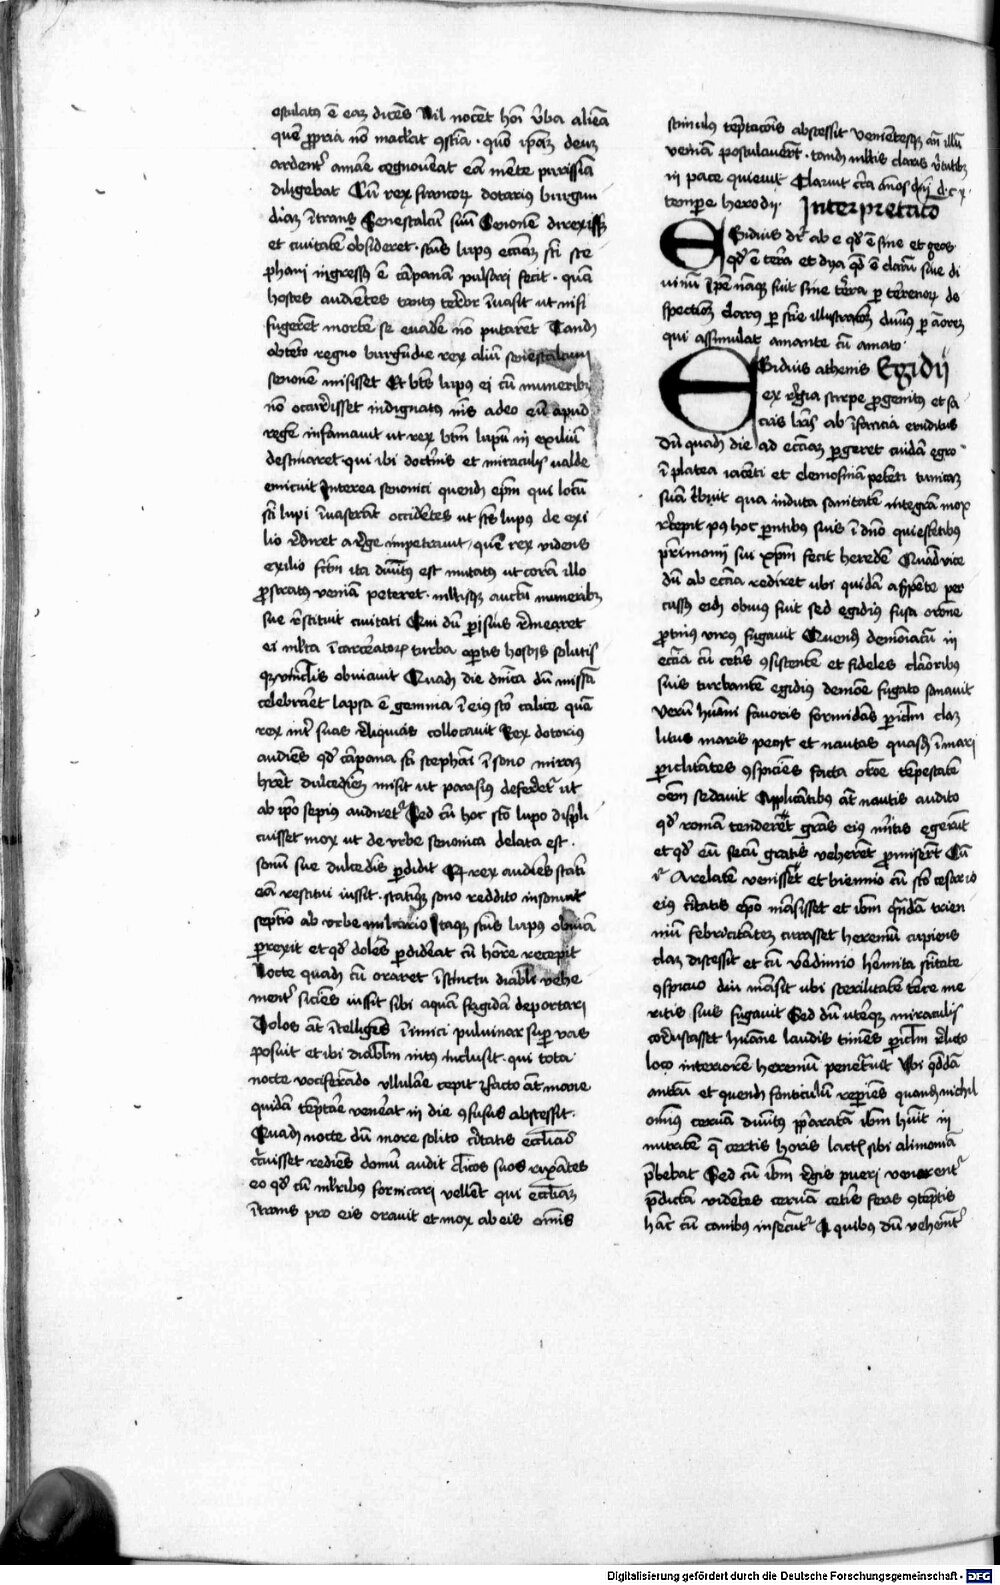 osculatus ē eaꝫ dicēs Nil nocēt hoī v̄ba aliēa
quē ꝓpria nō maculat ꝯsciā · quō ip̄aꝫ deuꝫ
ardent᷑ amāe cognou̔at eā mēte purissīa
diligebat Cū rex francoꝝ dotarius burgun
diaꝫ ītrans Senescalcū suū Senonē direxissꝫ
et ciuitatē obsideret · sc̄us lupus eccīaꝫ sc̄i ste
phani ingressꝰ ē cāpanam pulsari fecit · quā
hostes audientes tantus terror īuasit ut nisi
fugerēt mortē se euadē nō putarēt Tandē
obtēto regno burgūdie rex aliū senescalcum
senonē misisset Et bt̄s lupus ei cū muneribꝰ
nō occurrisset indignatus nīs adeo eū apud
regē infamauit ut rex bt̄m lupū in exiliū
destinaret · qui ibi doctīs et miraculis ualde
emicuit Interea senonici quendā ep̄m qui locū
sc̄i lupi īuaserat occidētes ut sc̄s lupus de exi
lio rediret a rege impetrauit / quē rex videns
exilio fctm̄ ita diuītus est mutatus ut corā illo
ꝓstratus veniā peteret · mltisqꝫ auctū muneribꝫ
sue rēstituit ciuitati Qui dū ꝑisius rēmearet
ei mlt̄a īcarceratoꝝ turba apertis hostijs solutis
qꝫ vinclis obuiauit Quadā die dnīca dū missā
celebraret lapsa ē gemma ī eius scō calice quā
rex int᷑ suas rēliquias collocauit Rex dotarius
audiēs qd̄ cāpana sc̄i stephani ī sono miraꝫ
hrēt dulcediēm misit ut parasius deferet᷑ ut
ab ip̄o sepius audiret᷑ Sed cū hoc scō lupo displi
cuisset mox ut de vrbe senonica delata est ·
sonū sue dulcedīs ꝑdidit Et rex audiēs statī
eā restitui iussit · statimqꝫ sono reddito insonuit
septimo ab vrbe miliario Itaqꝫ sc̄us lupus obuiā
ꝑrexit et qd̄ dolēs ꝑdidēat cū hōre recepit
Nocte quadā cū oraret īstinctu diaboli vehe
ment᷑ siciēs iussit sibi aquam frigidā deportari
Dolos aūt ītelligēs īimici puluinar suꝑ vas
posuit et ibi diabolm̄ intꝰ inclusit · qui tota
nocte vociferando vllulāe cepit
quidā temptare venerat in die ꝯfusus abscessit ·
Quadā nocte dū more solito ciuitatis
cuisset rediēs domū audit clicos suos rixātes
eo qd̄ cū mlieribus fornicari vellēt qui eccliam
ītrans pro eis orauit et mox ab eis omīs
stimulus tēptacōis abscessit venientesqꝫ añ illū
veniam postulauerūt · tandē mltis claris v̄tutibꝫ
in pace quieuit Claruit cīrca annos dnī d · c · x ·
tempore herodij · Interpretatio
Egidius dr̄ ab e qd̄ ē sine et geos
qd̄ ē terra et dya qd̄ ē clarū siue di
uinū Ip̄e nāqꝫ fuit sine terra ꝑ terrenoꝝ de
spectiōm clarus ꝑ scīe illustratōm diuīus ꝑ amorē
qui assimulat amante cū amato · Egidij
Egidius athenis
ex regia stirpe ꝓgenitus et sa
cris lr̄is ab īfancia eruditus
Dū quadā die ad eccīaꝫ ꝑgeret cuidā egro
ī platea iacēti et elemosinā petēti tunicaꝫ
suā tribuit qua induta sanitatē integrā mox
recepit pꝰ hoc parentibus suis ī dnō quiescētibus
prīmonij sui xp̄m fecit heredē Quadā vice
dū ab eccīa rediret ubi quidā a serpēte per
cussꝰ eidē obuius fuit sed egidius fusa orōne
ꝓtinus virus fugauit Quendā demoniacū in
eccīa cū cetīs ꝯsistentē et fideles clamoribus
suis turbantē egidius demōe fugato sanauit
verū humani fauoris formidās ꝑiclm̄ clam
litus maris peciit et nautas quasdā ī mari
ꝑiclitātes ꝯspiciēs facta orōe tēpestatē
oēm sedauit Applicātibus aūt nautis audito
qd̄ romā tenderēt grās eius m̄itis egerūt
et qd̄ eū secū gratis veherēt ꝓmiserūt Cū
Arelatē venisset et biennio cū scō cesario
eius ciuitatis ep̄o māsisset et ibm̄ quēdā trien
niū febricitātem curasset heremū cupiens
clam discessit et cū veredimio hēmita scītate
ꝯspicuo diu māsit ubi sterilitatē terre me
ritis suis fugauit Sed dū utrimqꝫ miraculis
coruscasset humane laudis timēs ꝑiclm̄ relicto
loco interiorem heremū penetrauit Ubi quoddā
antrū et quendā fonticulū reperiēs quandā nichil
omīus ceruā diuītus p̄paratā ibm̄ hūit in
nutricē q̄ certis horis lactꝫ sibi alimoniā
p̄bebat Sed cū ibm̄ regis pueri venirent᷑
p̄dictā videntes ceruā cetīs feris ꝯtēptis
hāc cū canibus insecūt᷑ A quibus dū vehemēt᷑
Digitalisierung gefördert durch die Deutsche Forschungsgemeinschaft - DFG